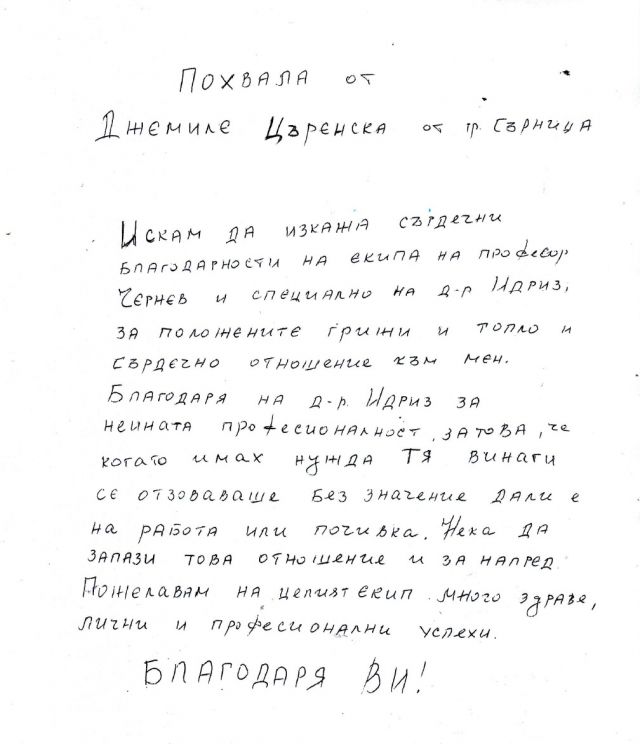 Похвала от
Джемиле Църенска от гр. Сърница
Искам да изкажа сърдечни
благодарности на екипа на професор
Чернев и специално на д-р Идриз,
за положените грижи и топло и
сърдечно отношение към мен.
Благодаря на д-р. Идриз за
нейната професионалност, затова, че
когато имах нужда Тя винаги
се отзоваваше без значение дали е
на работа или почивка. Нека да
запази това отношение и за напред.
Пожелавам на целият екип много здраве,
лични и професионални успехи.
Благодаря Ви!